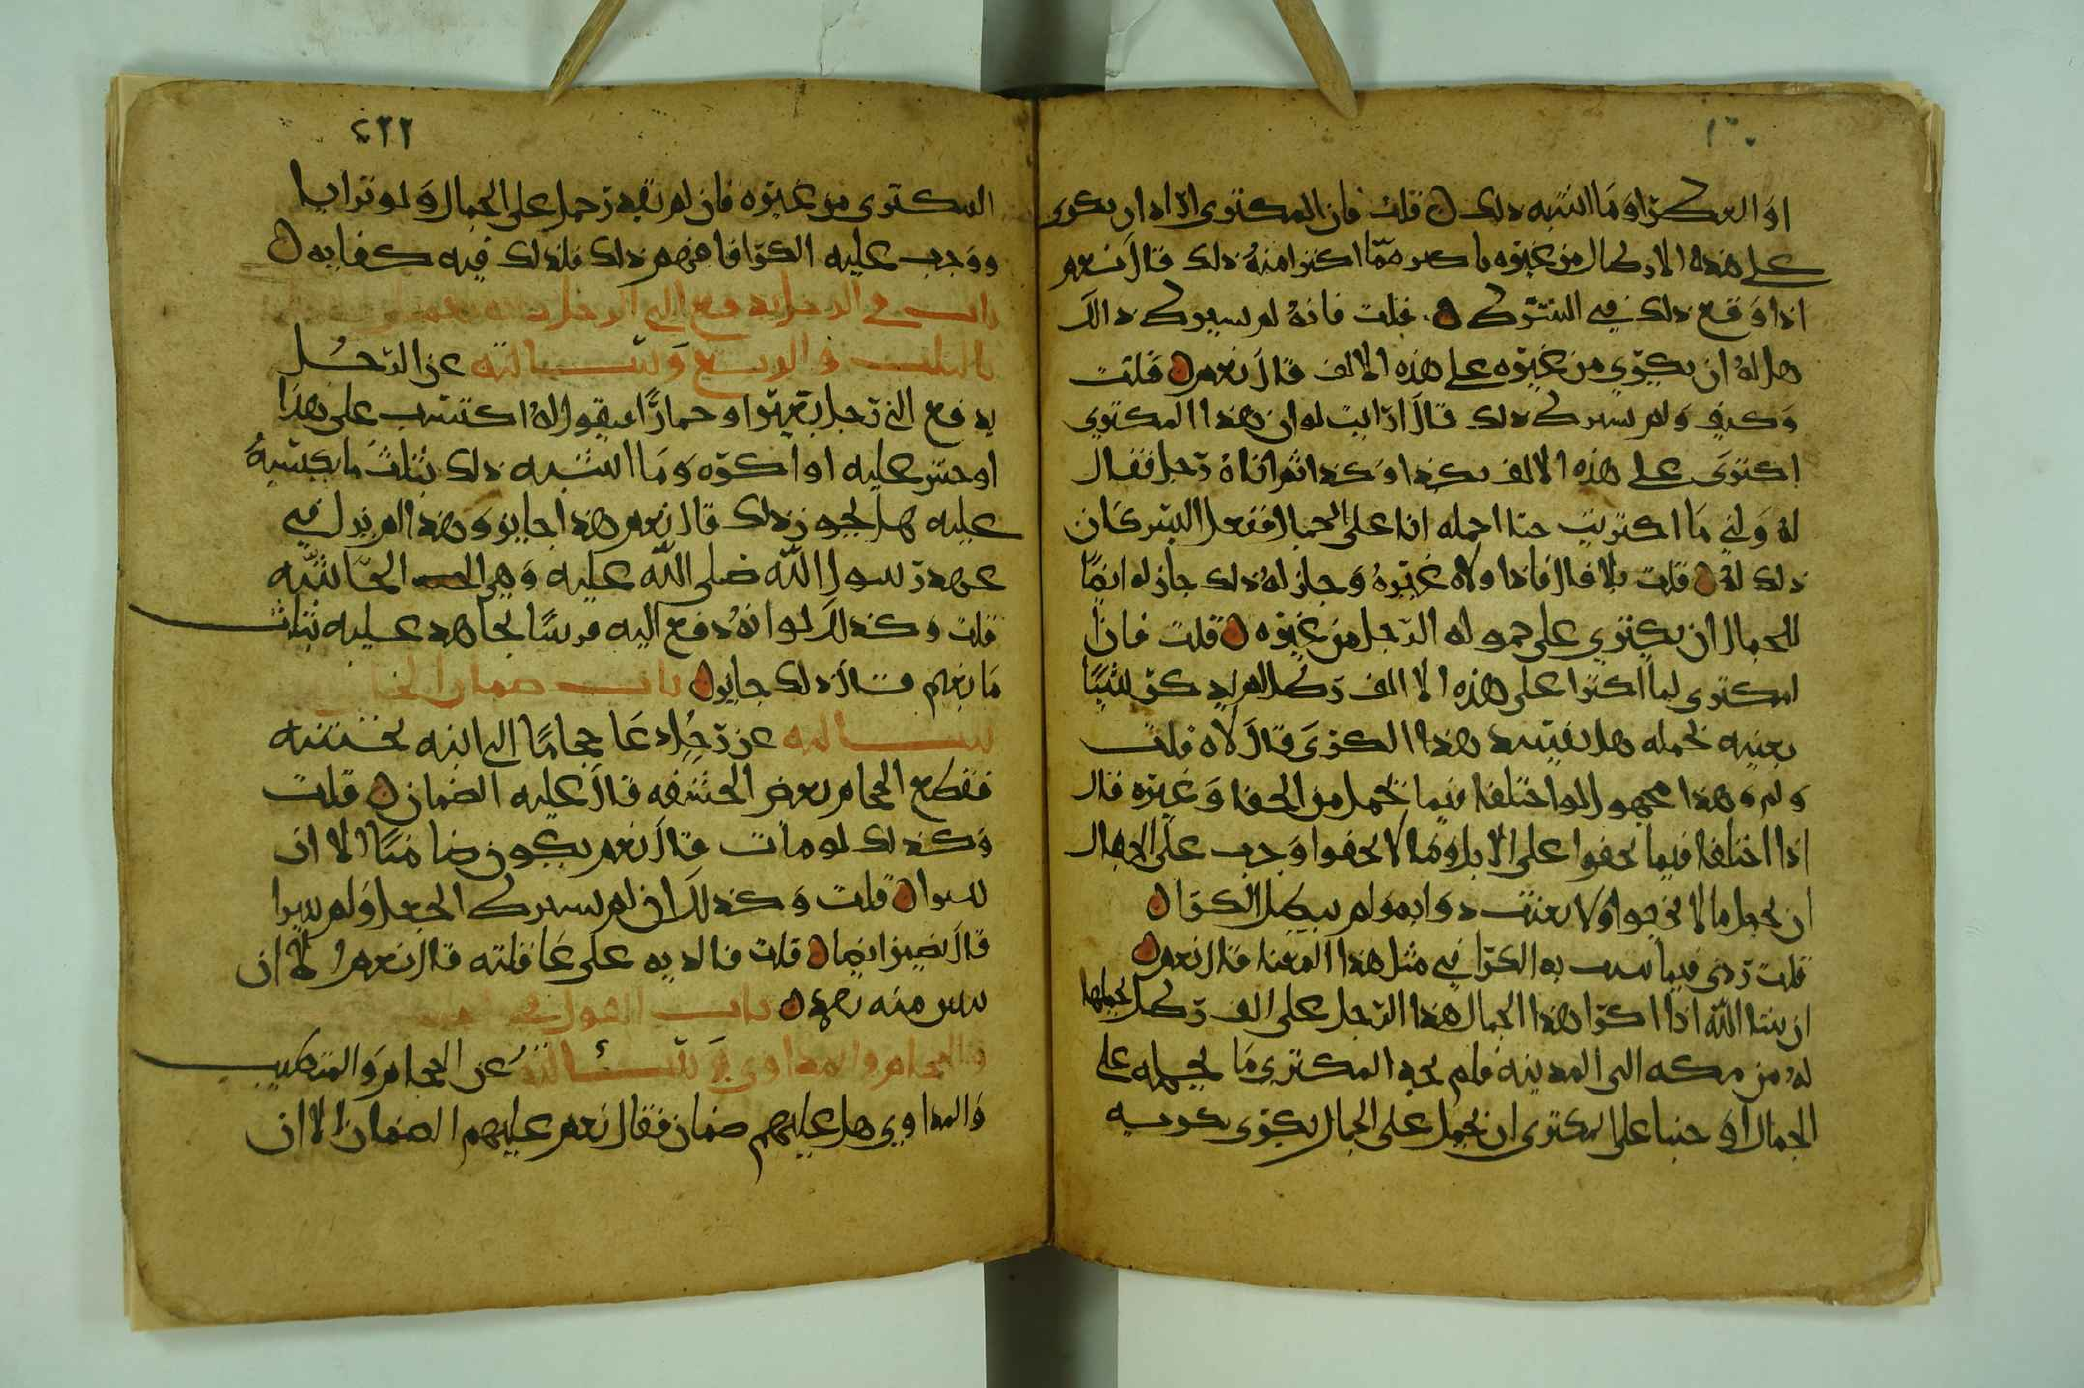 او العسكر او ما اشبه ذلك قلت فان المكتري اراد ان يكري
على هذه الارطال من غيره باكثر مما اكترا منه ذلك قال نعم
اذا وقع ذلك في الشرك قلت فانه لم يشرك ذالك
هل له ان يكري من غيره على هذه الالف قال نعم قلت
وكيف ولم يشرك ذلك قال ارايت لو ان هذا المكتري
اكترى على هذه الالف بكذا وكذا ثم اتاه رجل فقال
له ولني ما اكتريت حتا احمله انا على الجمال ففعل اليس كان
ذلك له قلت بلا قال فاذا ولاه غيره وجاز له ذلك جاز له ايضا
للجمال ان يكتري على حموله الرجل من غيره قلت فان
المكتري لما اكترا على هذه الالف رطل لم يذكر شيئا
بعينه يحمله هل يفسد هذا الكرى قال لا قلت
ولم وهذا مجهول لو اختلفا فيما يحمل من الخفا وغيره قال
اذا اختلفا فيما يحفوا على الابل وما لا يحفوا وجب على الجمال
ان يحمل ما لا يجحوا ولا يعنت دوابه ولم يبطل الكرا
قلت ردي فيما سب به الكرا في مثل هذا المعنا قال نعم
ان شا الله اذا اكرا هذا الجمال هذا الرجل على الف رطل يحملها
له من مكه الى المدينه فلم يجد المكتري ما يحمله على
الجمال اوجبنا على المكتري ان يحمل على الجمال بكرى يكريه
٢٢٦
المكتري من غيره فان لم يقدر حمل على الجمال ولو ترابا
ووجب عليه الكرا فافهم ذلك فلذلك فيه كفايه
باب في الرجل يدفع الى الرجل
بالثلث والربع وسالته عن الرجل
يدفع الى رجل بعيرا او حمارا فيقول له اكتسب على هذا
او حش عليه او اكره وما اشبه ذلك بثلث ما يكسبه
عليه هل يجوز ذلك قال نعم هذا جايز وهذا لم يزل في
عهد رسول الله صلى الله عليه وهي المحاشه
قلت وكذلك لو انه دفع اليه فرسا يجاهد عليه بثلث
ما يغنم قال ذلك جايز باب ضمان
سالته عن رجل دعا حجاما الى ابنه يختنه
فقطع الحجام بعض الحشفه قال عليه الضمان قلت
وكذلك لو مات قال نعم يكون ضامنا الا ان
يبرا قلت وكذلك ان لم يشرك الجعل ولم يبرا
قال يضمن ايضا قلت فالديه على عاقلته قال نعم الا ان
يبين منه تعمد باب القول في
الحجام والمداوي وسالته عن الحجام والمتطبب
والمداوي هل عليهم ضمان فقال نعم عليهم الضمان الا ان